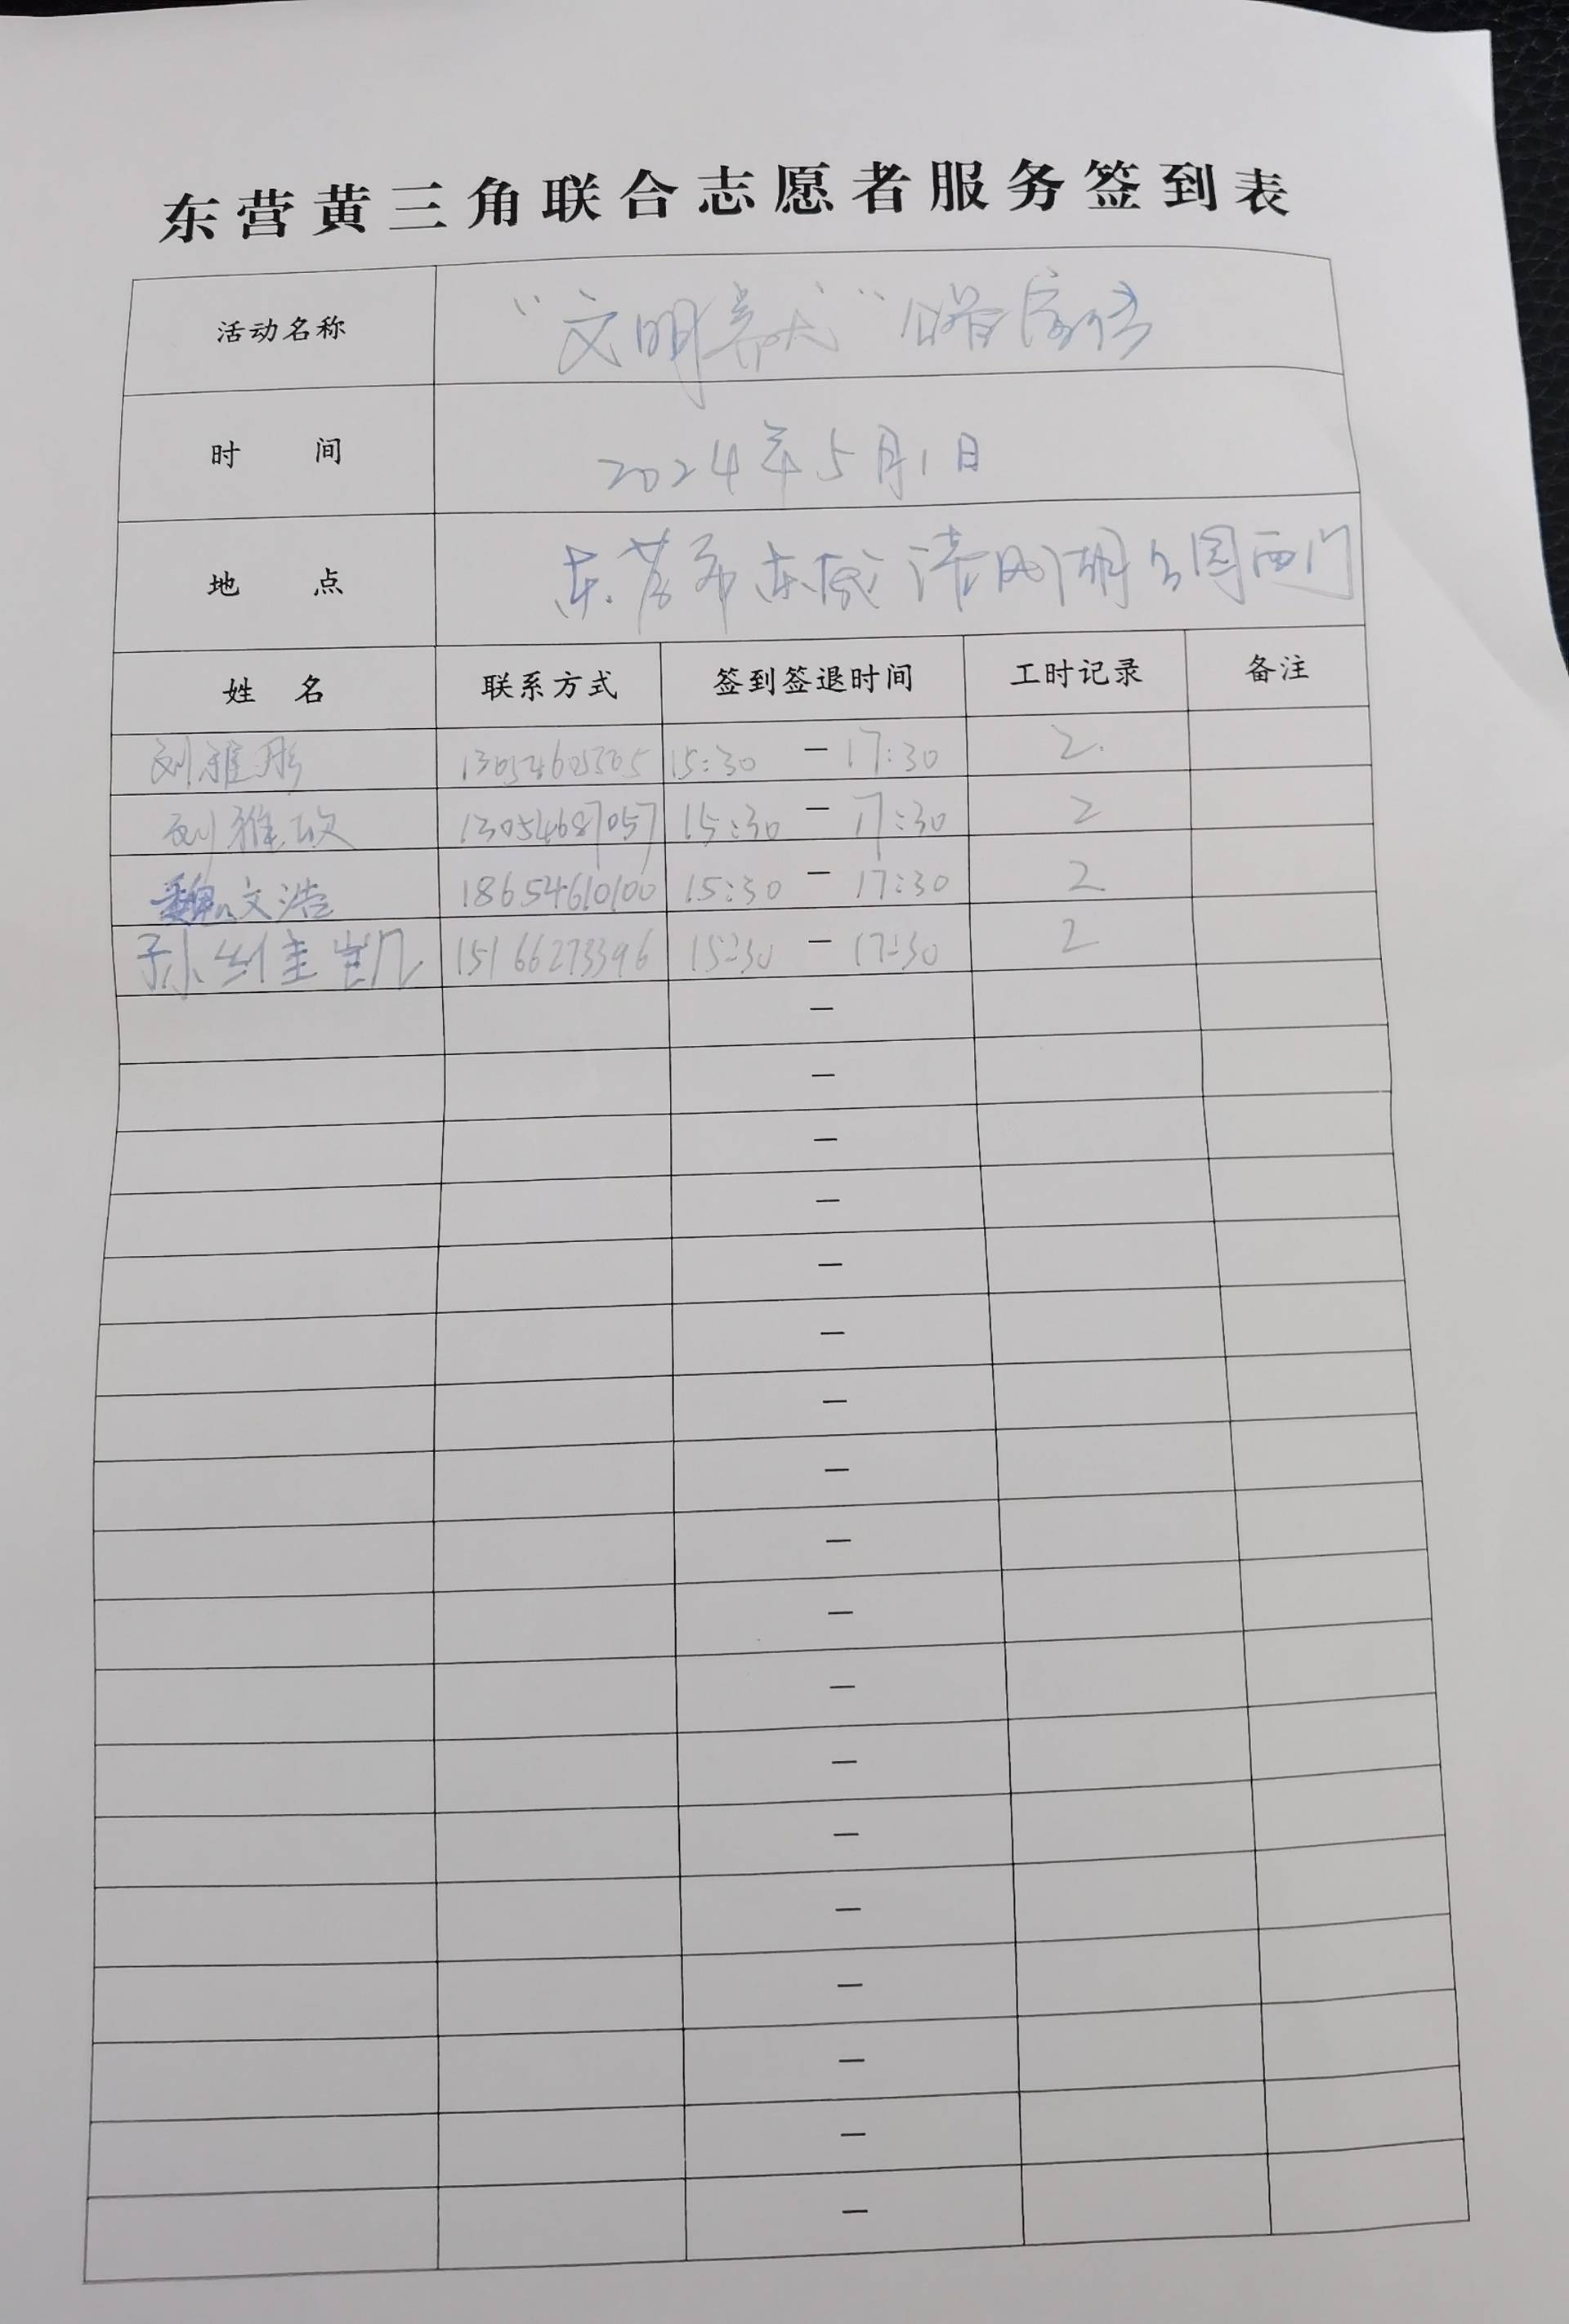 东营黄三角联合志愿者服务签到表
活动名称 “文明养犬”公益宣传
时 间 2024年5月1日
地 点 东营市东城清风湖公园西门
姓 名 联系方式 签到签退时间 工时记录 备注
刘雅彤 15:30 — 17:30 2
刘雅欣 13054687057 15:30 — 17:30 2
魏文浩 18654610100 15:30 — 17:30 2
孙 15166273396 15:30 — 17:30 2
—
—
—
—
—
—
—
—
—
—
—
—
—
—
—
—
—
—